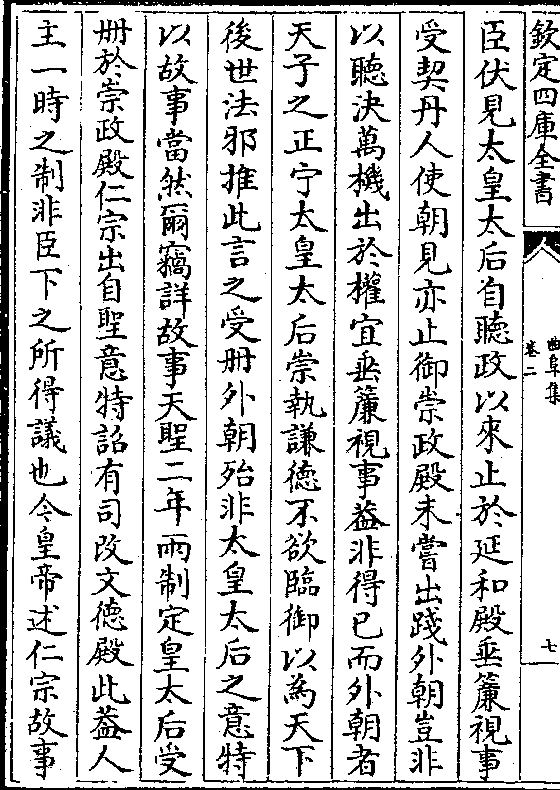 欽定四庫全書
曲阜集
卷二
七
臣伏見太皇太后自聽政以來止於延和殿垂簾視事
受契丹人使朝見亦止御崇政殿未嘗出踐外朝豈非
以聽決萬機出於權宜垂簾視事葢非得已而外朝者
天子之正宁太皇太后崇執謙德不欲臨御以為天下
後世法邪推此言之受册外朝殆非太皇太后之意特
以故事當然爾竊詳故事天聖二年兩制定皇太后受
册於崇政殿仁宗出自聖意特詔有司改文德殿此葢人
主一時之制非臣下之所得議也今皇帝述仁宗故事